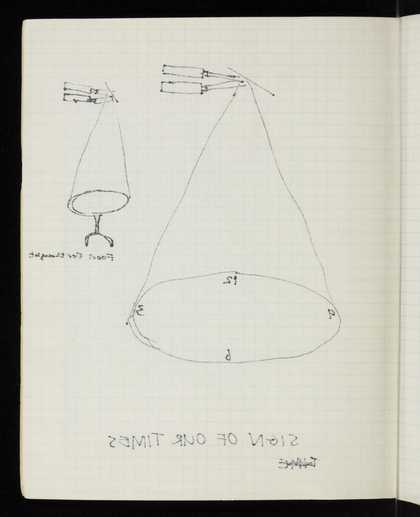 12
3
9
6
Food for thought
SIGN OF OUR TIMES